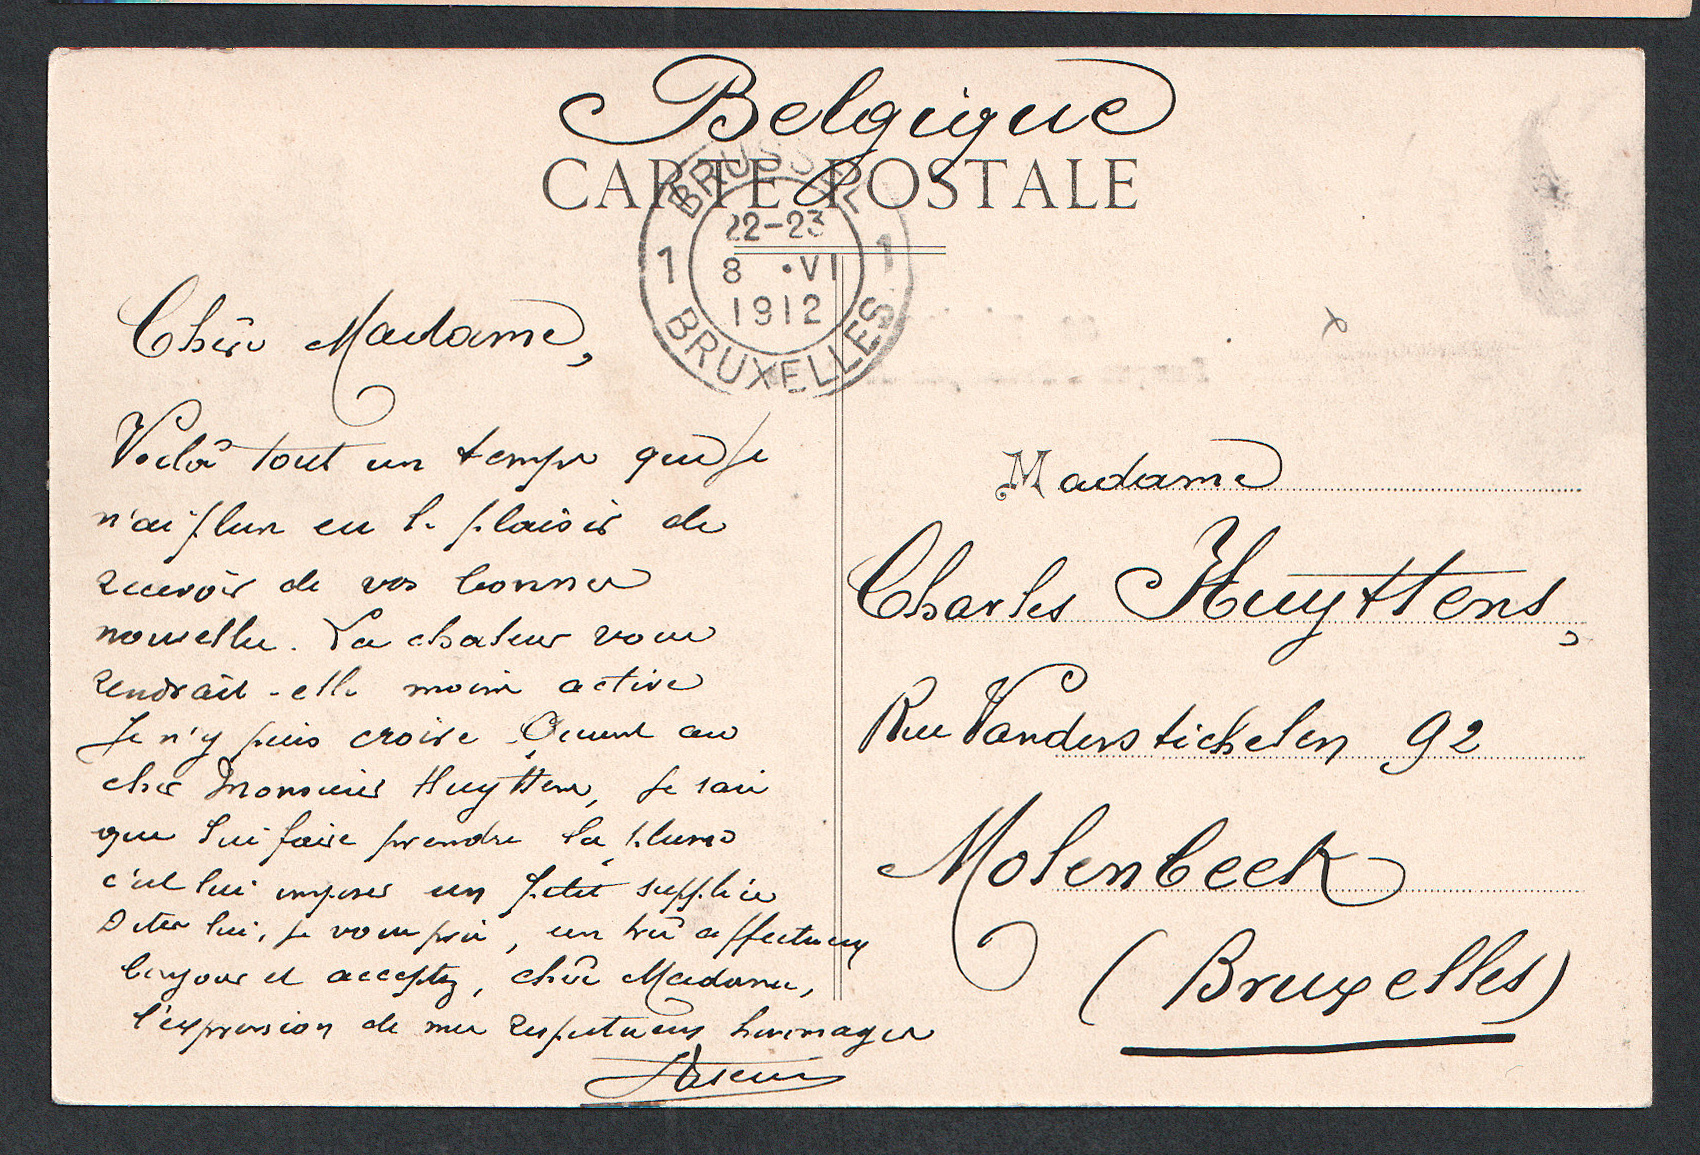 Belgique
CARTE POSTALE
BRUSSEL
22-23
1 8 .VI 1
1912
BRUXELLES
Chère Madame,
Voilà tout un temps que je
n'ai plus eu le plaisir de
recevoir de vos bonnes
nouvelles. La chaleur vous
rendrait-elle moins active
Je n'y puis croire. Quant au
cher Monsieur Huyttens, je sais
que lui faire prendre la plume
c'est lui imposer un petit supplice
Dites lui, je vous prie, un très affectueux
bonjour et acceptez, chère Madame,
l'expression de mes respectueux hommages
Madame
Charles Huyttens,
Rue Vanderstichelen 92
Molenbeek
(Bruxelles)